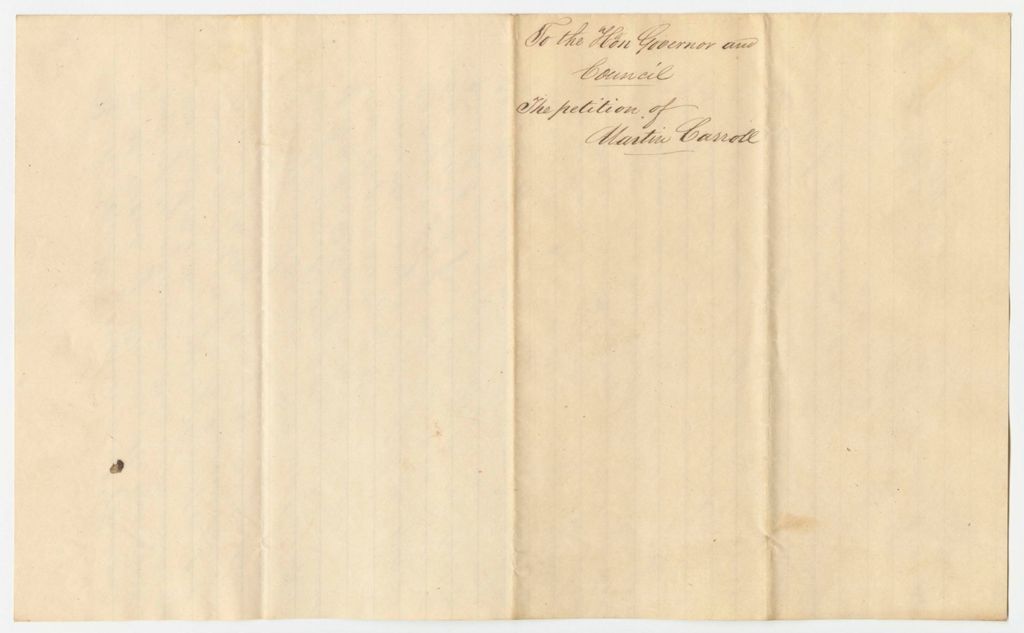 To the Hon Governor and
Council
The petition of
Martin Carroll